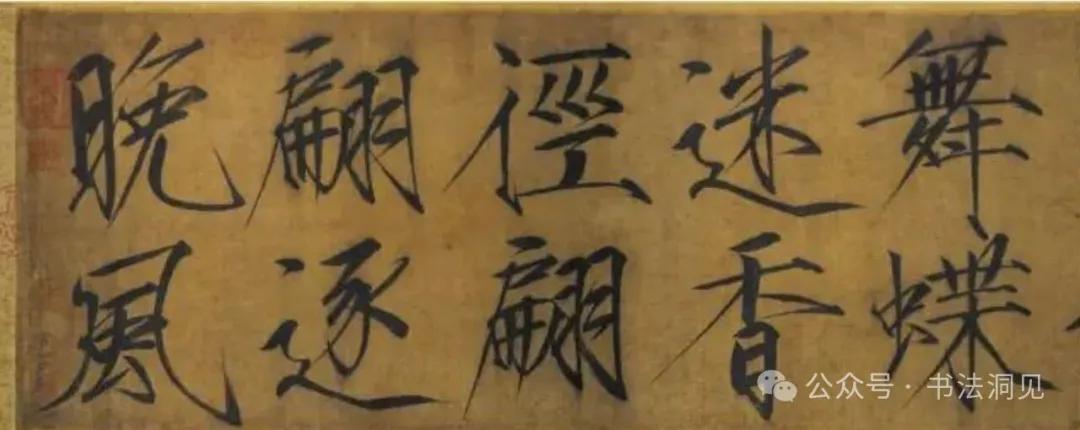 舞蝶
迷香
徑翩
翩逐
晚風
公众号 · 书法洞见